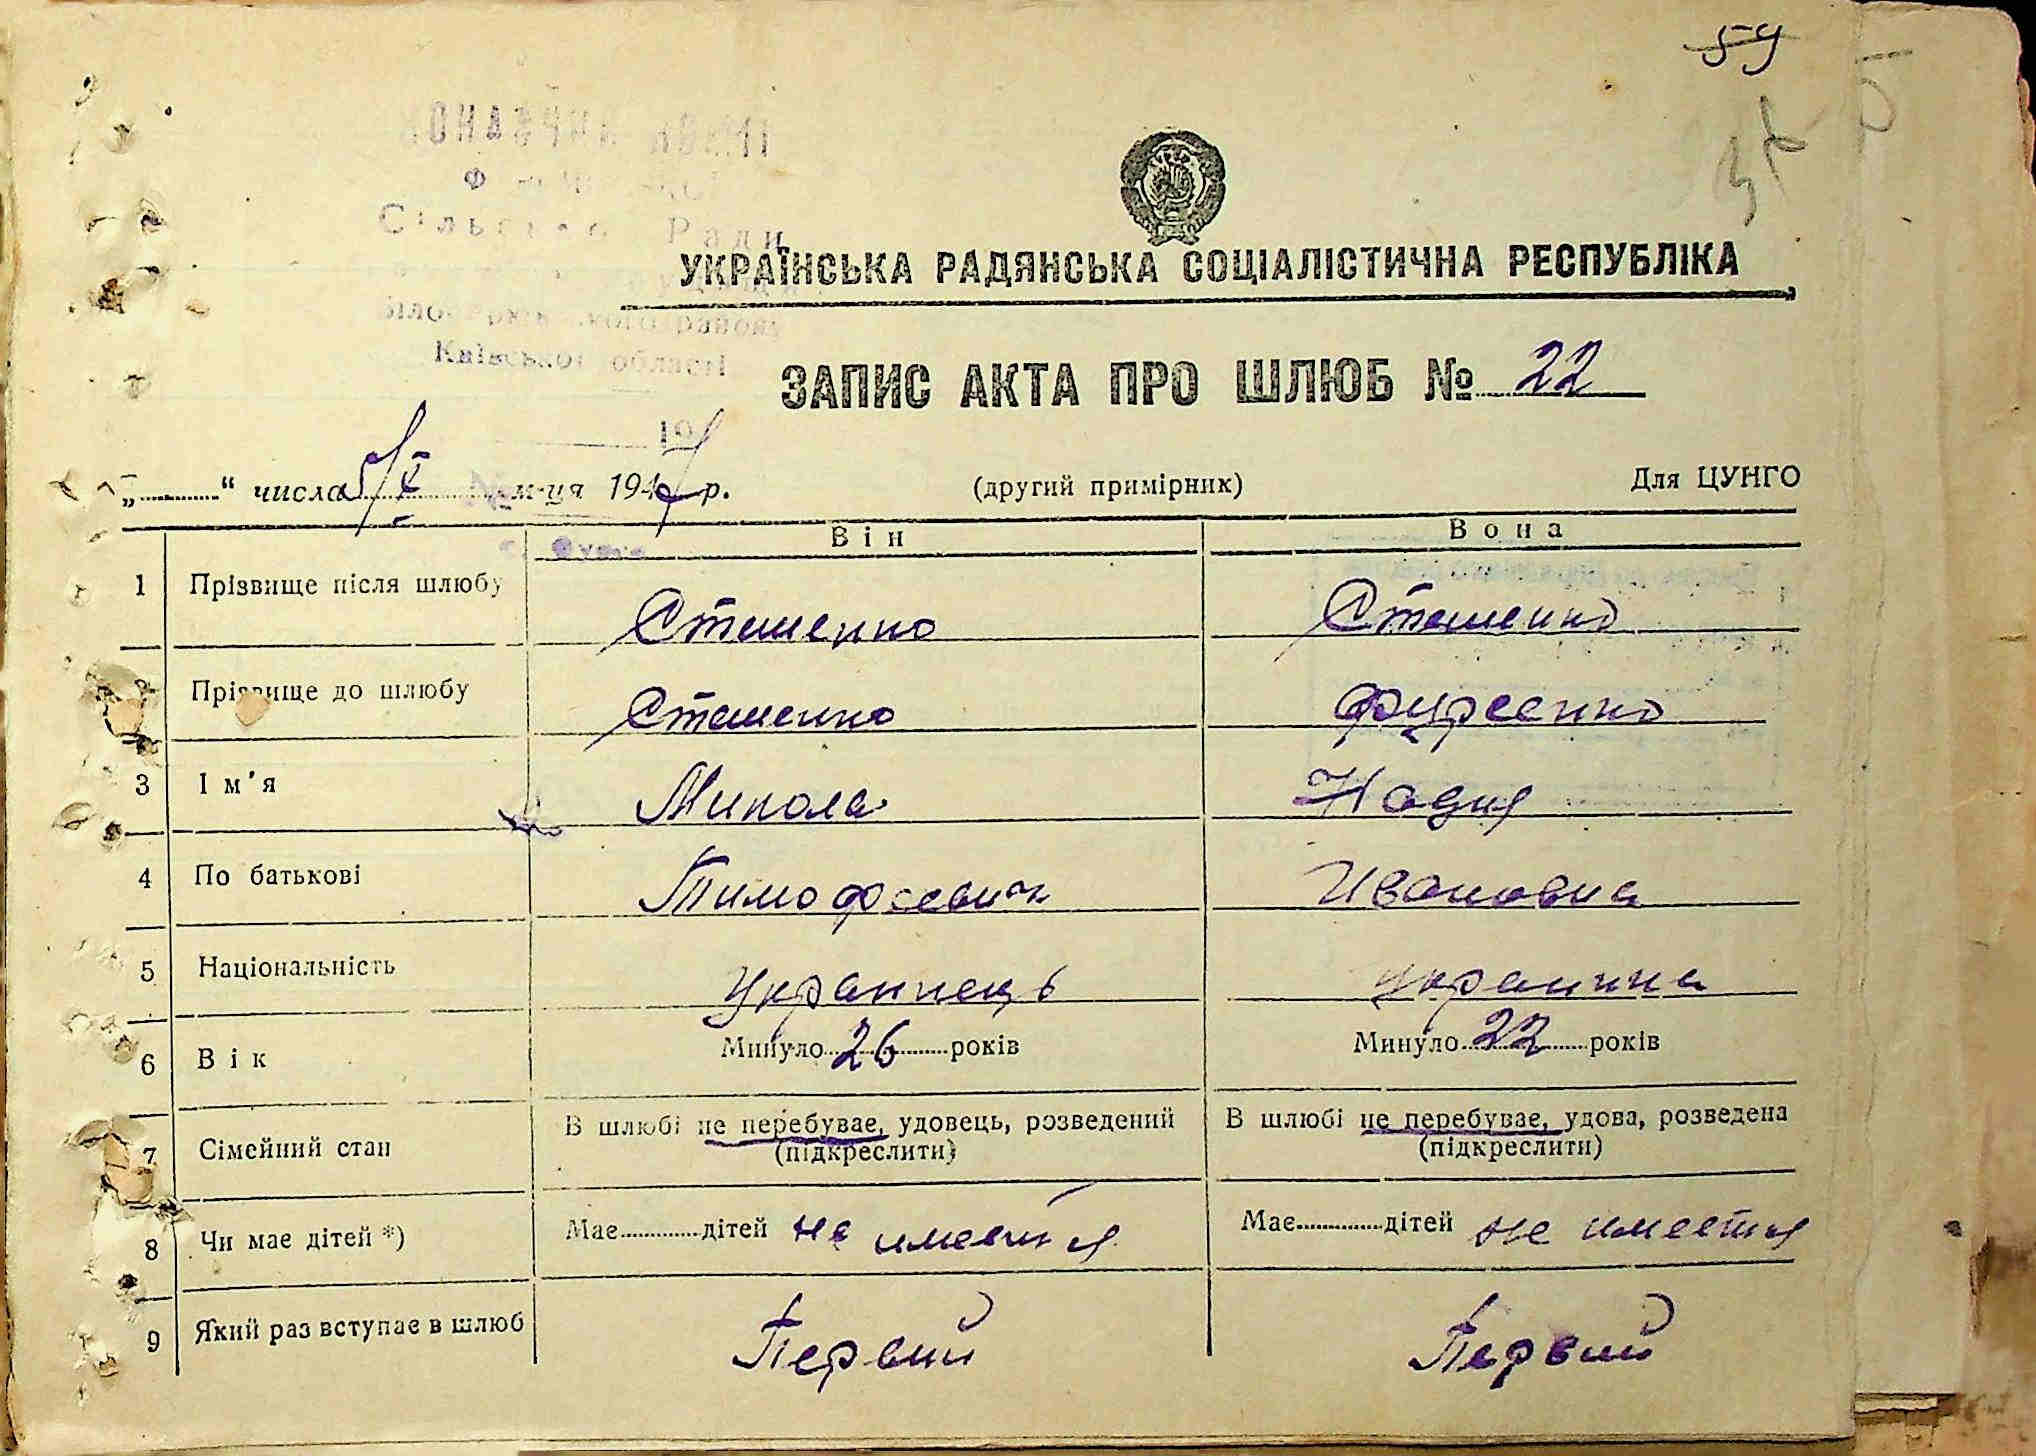 59
Сільської Ради
Київської області
УКРАЇНСЬКА РАДЯНСЬКА СОЦІАЛІСТИЧНА РЕСПУБЛІКА
ЗАПИС АКТА ПРО ШЛЮБ № 22
„ “ числа 5/X м-ця 194 р. (другий примірник) Для ЦУНГО
Він Вона
1 Прізвище після шлюбу Стешенко Стешенко
2 Прізвище до шлюбу Стешенко Фурсенко
3 Ім'я Микола Надия
4 По батькові Тимофеевич Ивановна
5 Національність Украинець украинка
6 Вік Минуло 26 років Минуло 22 років
7 Сімейний стан В шлюбі не перебуває, удовець, розведений В шлюбі не перебуває, удова, розведена
(підкреслити) (підкреслити)
8 Чи має дітей *) Має дітей не имеется Має дітей не имеется
9 Який раз вступає в шлюб Первий Первий